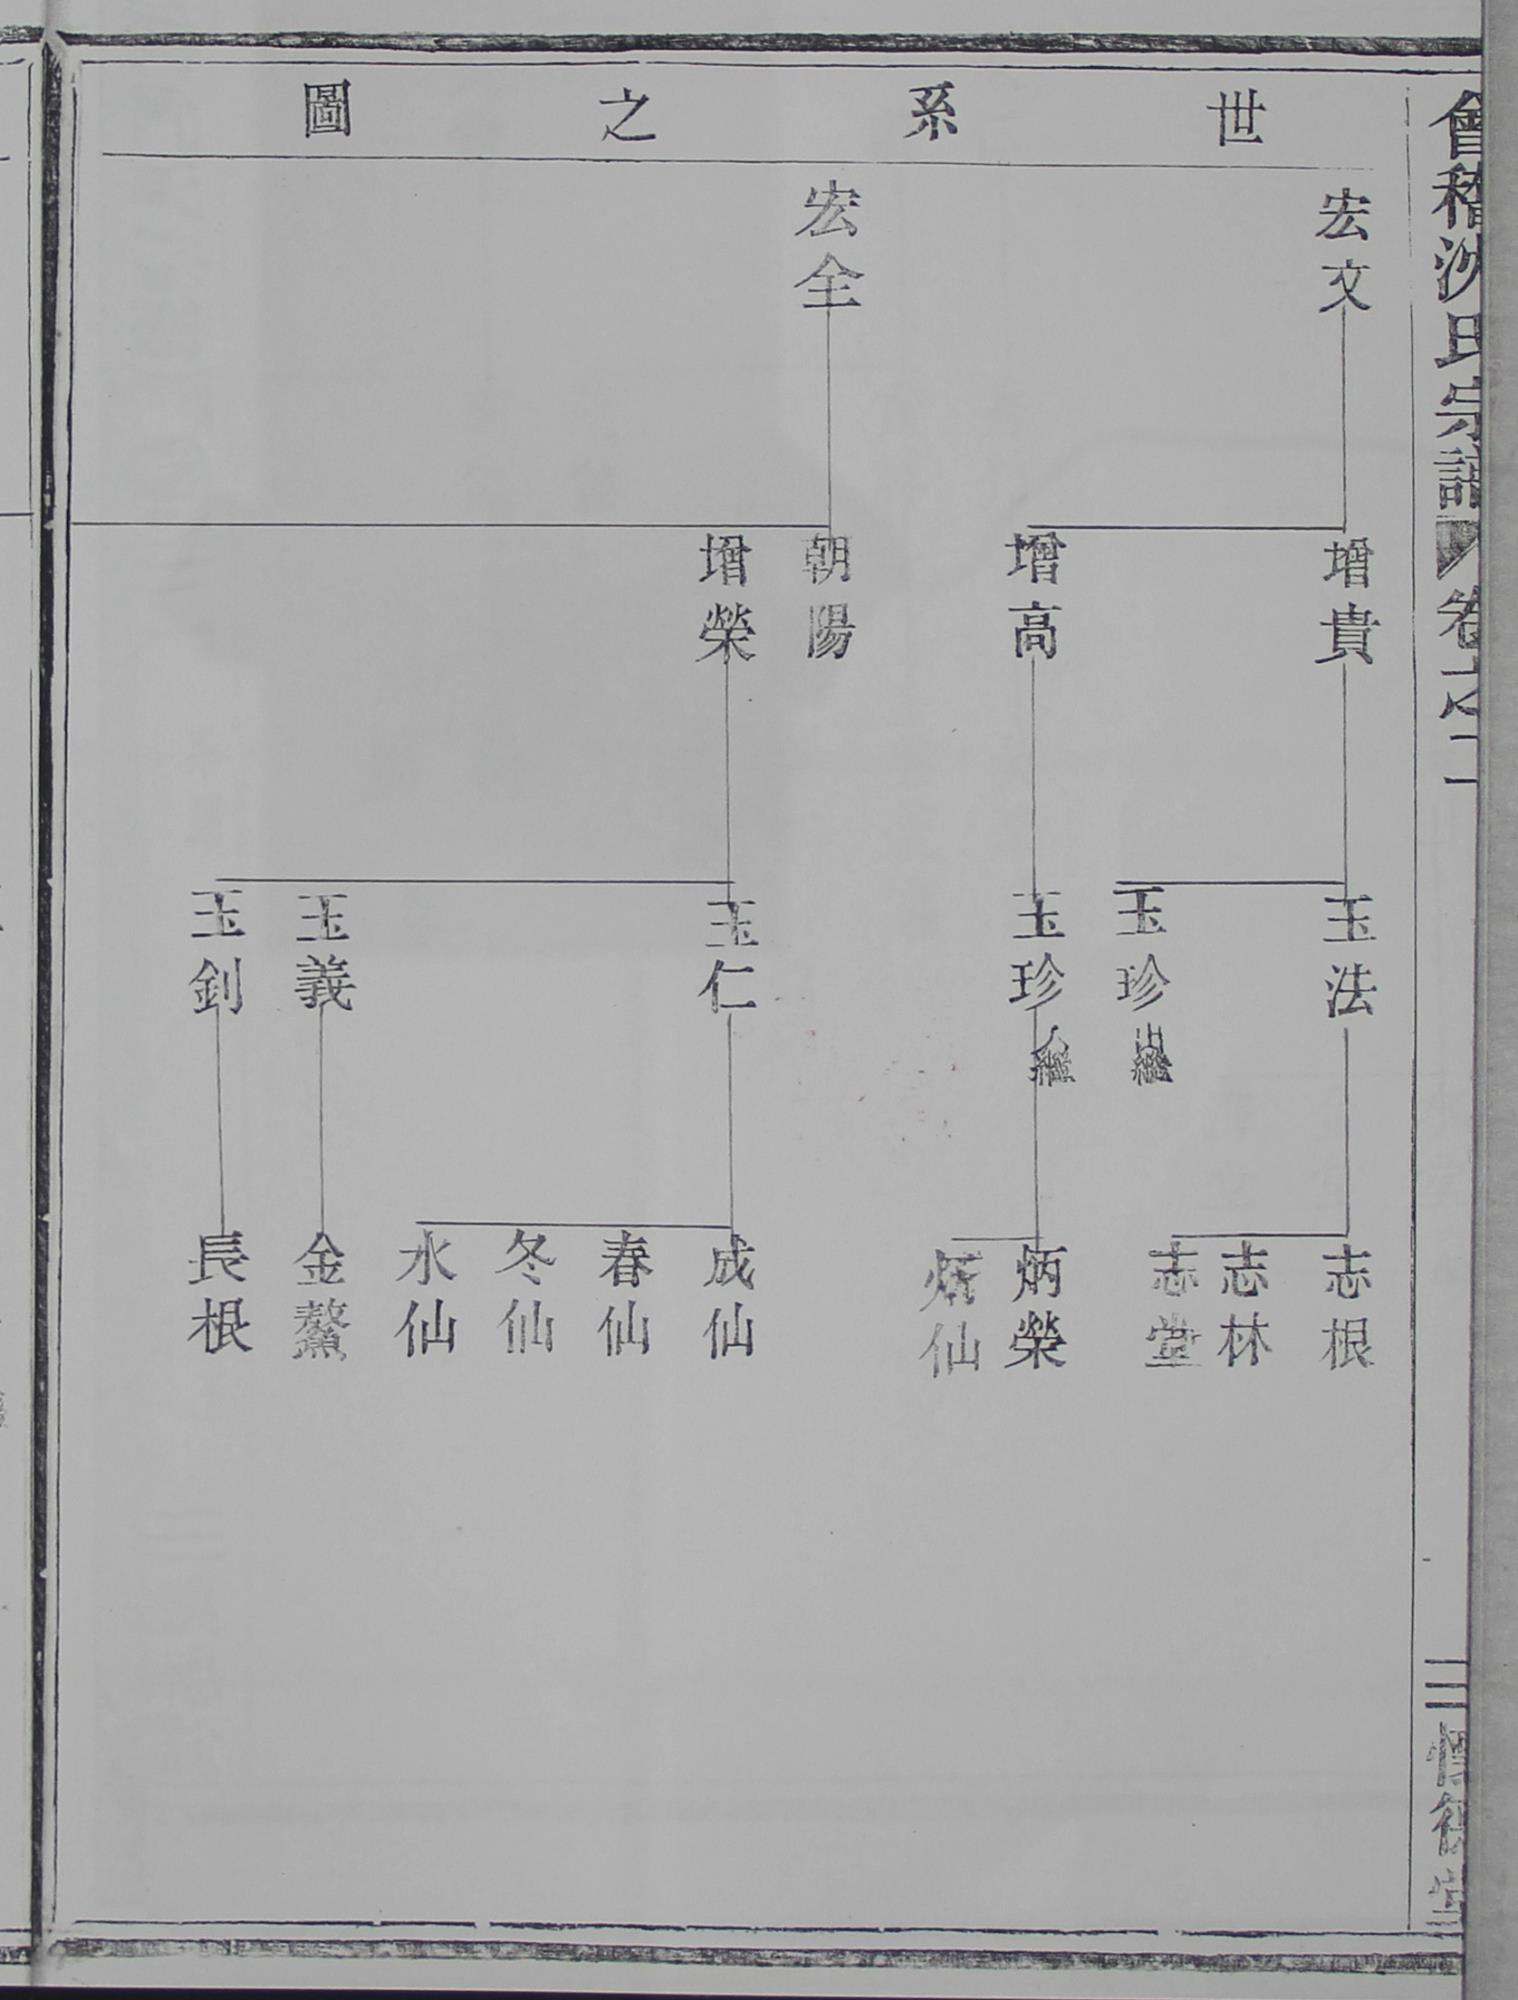 會稽沈氏宗譜 卷之二
三 惇德堂
世系之圖
宏文
宏全
增貴
增高
朝陽
增榮
玉法
玉珍 出繼
玉珍 入繼
玉仁
玉義
玉釗
志根
志林
志堂
炳榮
炳仙
成仙
春仙
冬仙
水仙
金鰲
長根